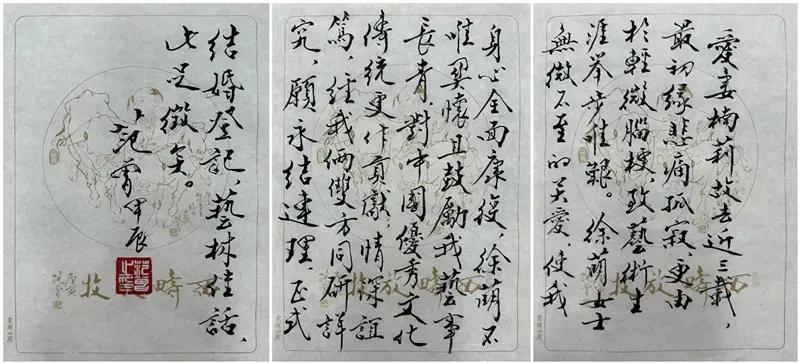 愛妻楠莉故去近三載，
最初緣悲痛孤寂，更由
於輕微腦梗，致藝術生
涯舉步惟艱。徐萌女士
無微不至的关愛，使我
西疇放牧
身心全面康復，徐萌不
唯关懷且鼓勵我藝事
長青，對中國優秀文化
傳統更作貢獻，情深誼
篤，經我倆雙方同研詳
究，願永結連理，正式
西疇放牧
結婚登記，藝林佳話，
此足徵矣。
范曾甲辰
西疇放牧